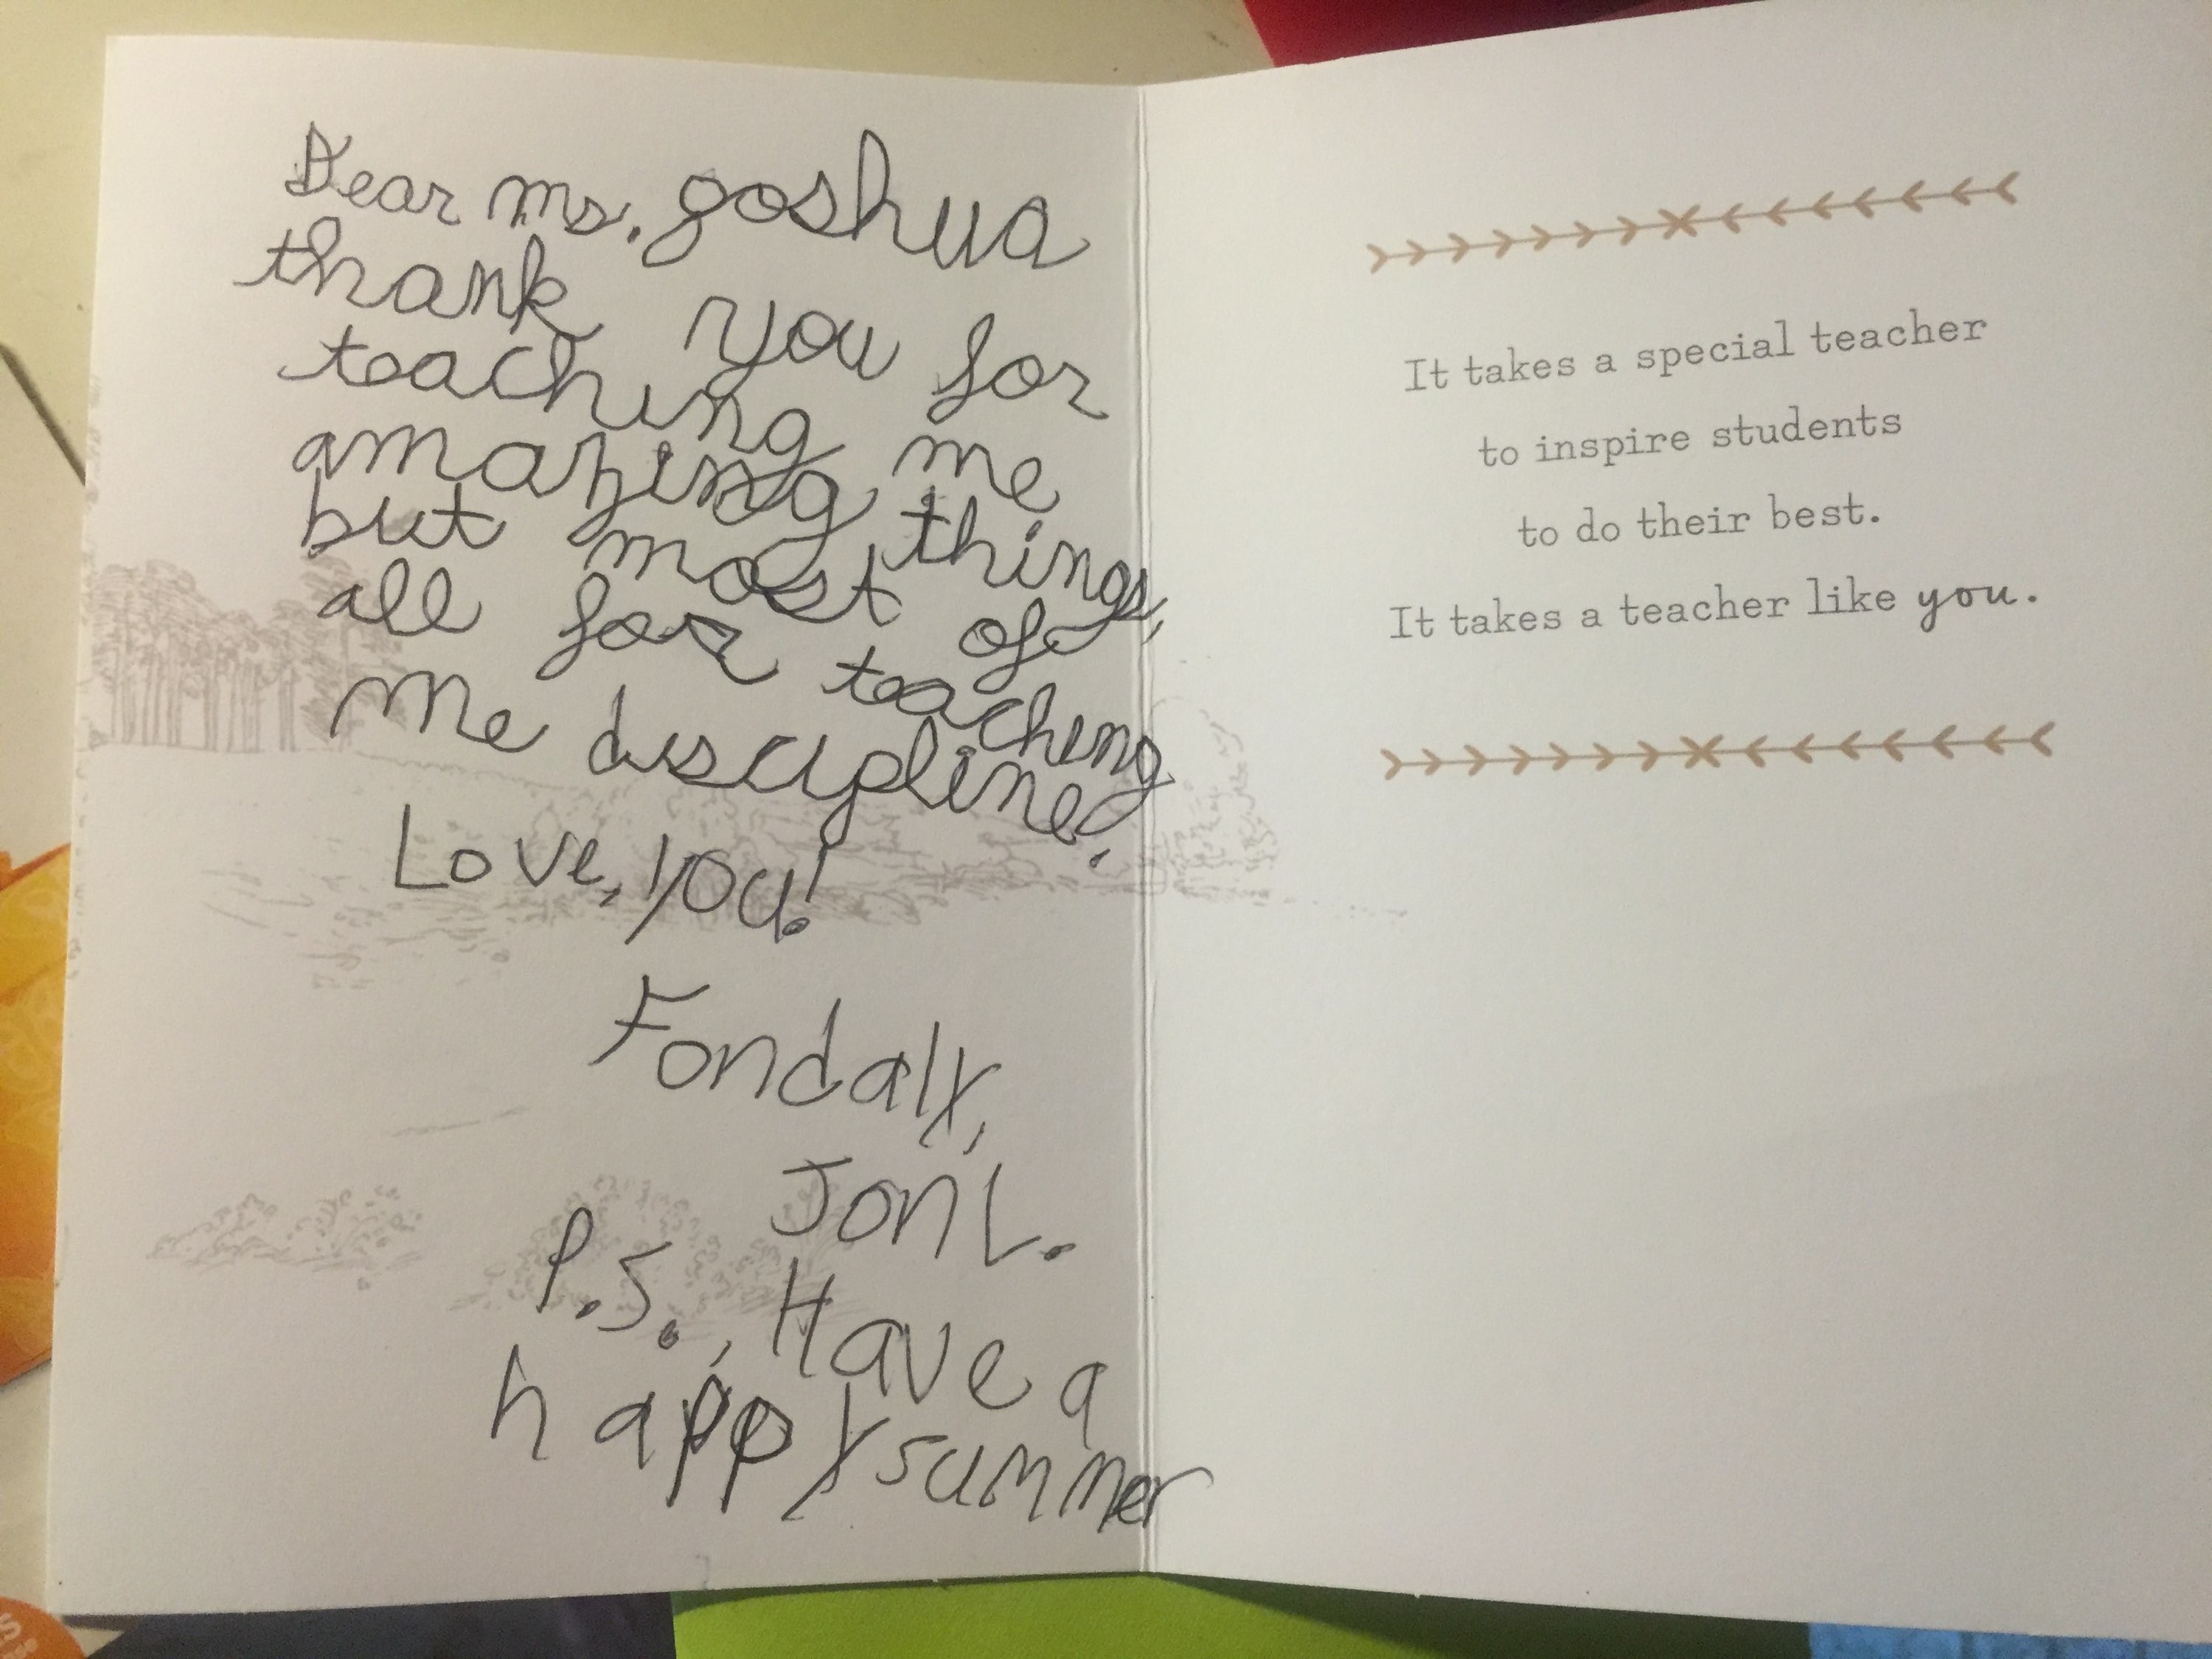 Dear ms. goshua
thank you for
teaching me
amazing things,
but most of
all for teaching
me discipline!
Love, you!
Fondaly,
Jon L.
P.S., Have a
happy summer
It takes a special teacher
to inspire students
to do their best.
It takes a teacher like you.